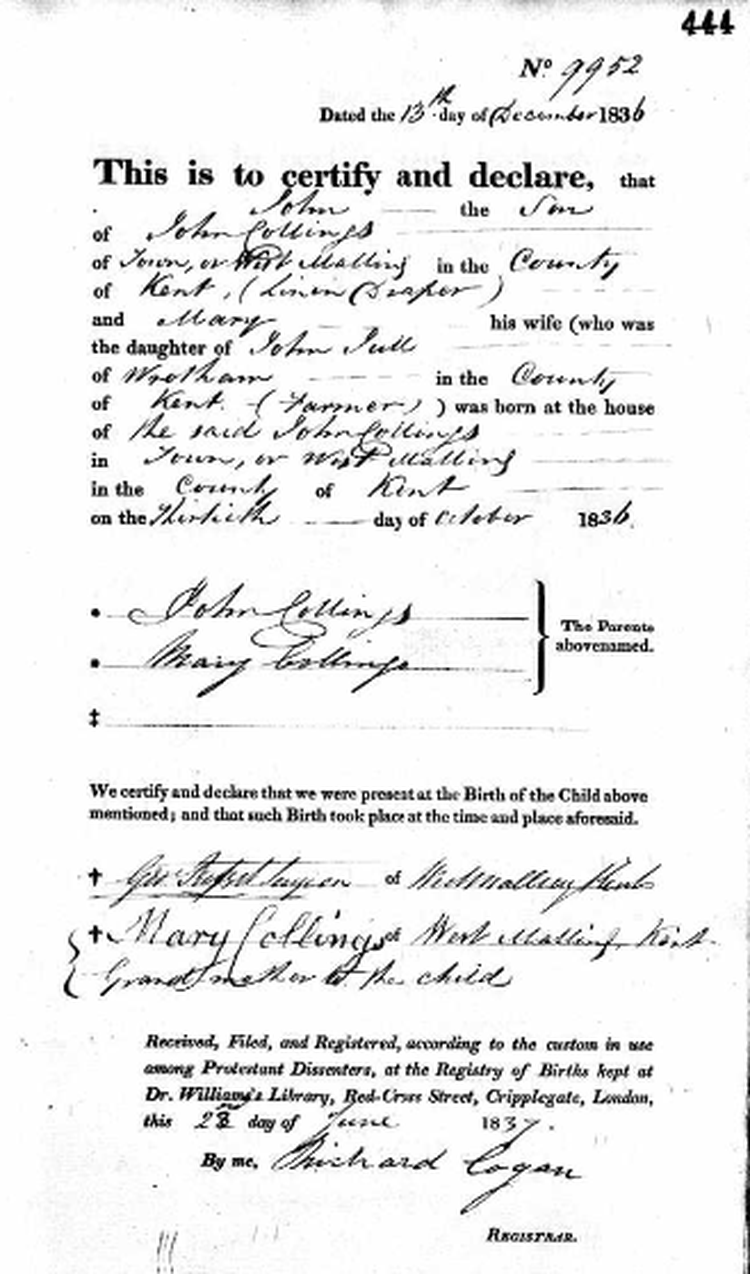 444
No 9952
Dated the 13th day of December 1836
This is to certify and declare, that
John the Son
of John Collings
of Town, or West Malling in the County
of Kent, (Linen Draper)
and Mary his wife (who was
the daughter of John Jull
of Wrotham in the County
of Kent. (Farmer) ) was born at the house
of the said John Collings
in Town, or West Malling
in the County of Kent
on the Thirtieth day of October 1836.
• John Collings
• Mary Collings
} The Parents
abovenamed.
‡
We certify and declare that we were present at the Birth of the Child above
mentioned; and that such Birth took place at the time and place aforesaid.
† Surgeon of West Malling Kent
† Mary Collings of West Malling, Kent.
Grandmother to the child
Received, Filed, and Registered, according to the custom in use
among Protestant Dissenters, at the Registry of Births kept at
Dr. Williams's Library, Red-Cross Street, Cripplegate, London,
this day of June 1837.
By me, Richard Cogan
REGISTRAR.